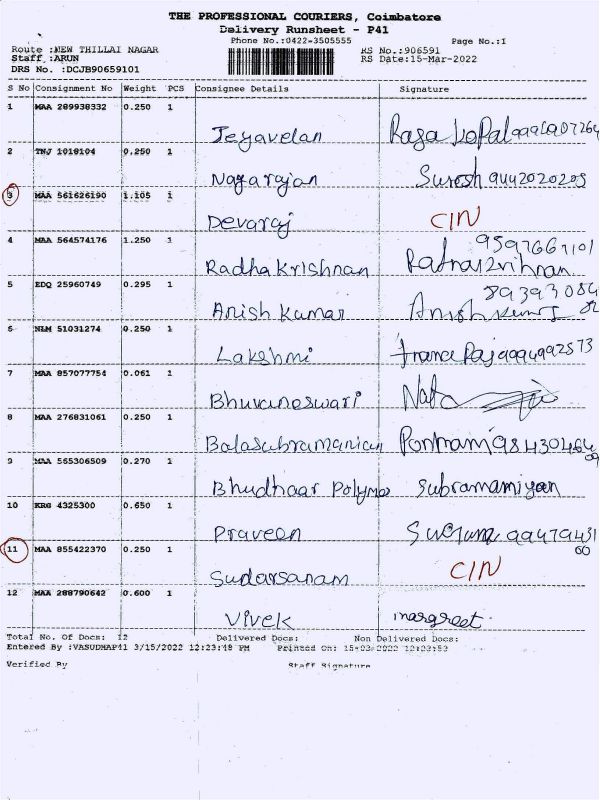 THE PROFESSIONAL COURIERS, Coimbatore
Delivery Runsheet - P41
Phone No.:0422-3505555 Page No.:1
Route :NEW THILLAI NAGAR RS No.:906591
Staff :ARUN RS Date:15-Mar-2022
DRS No. :DCJB90659101
S No Consignment No Weight PCS Consignee Details Signature
1 MAA 289938332 0.250 1
Jeyavelan
2 TNJ 1018104 0.250 1
Nagarajan Suresh 9442020205
3 MAA 561626190 1.105 1
Devaraj CIN
4 MAA 564574176 1.250 1
Radha Krishnan
5 EDQ 25960749 0.295 1
Anish Kumar
6 NLM 51031274 0.250 1
Lakshmi
7 MAA 857077754 0.061 1
Bhuvaneswari
8 MAA 276831061 0.250 1
Balasubramanian
9 MAA 565306509 0.270 1
Bhudhaar Polymer
10 KRG 4325300 0.650 1
Praveen
11 MAA 855422370 0.250 1
Sudarsanam CIN
12 MAA 288790642 0.600 1
Vivek margreet
Total No. Of Docs: 12 Delivered Docs: Non Delivered Docs:
Entered By :VASUDMAP41 3/15/2022 12:23:48 PM Printed On: 15-03-2022 12:23:53
Verified By Staff Signature